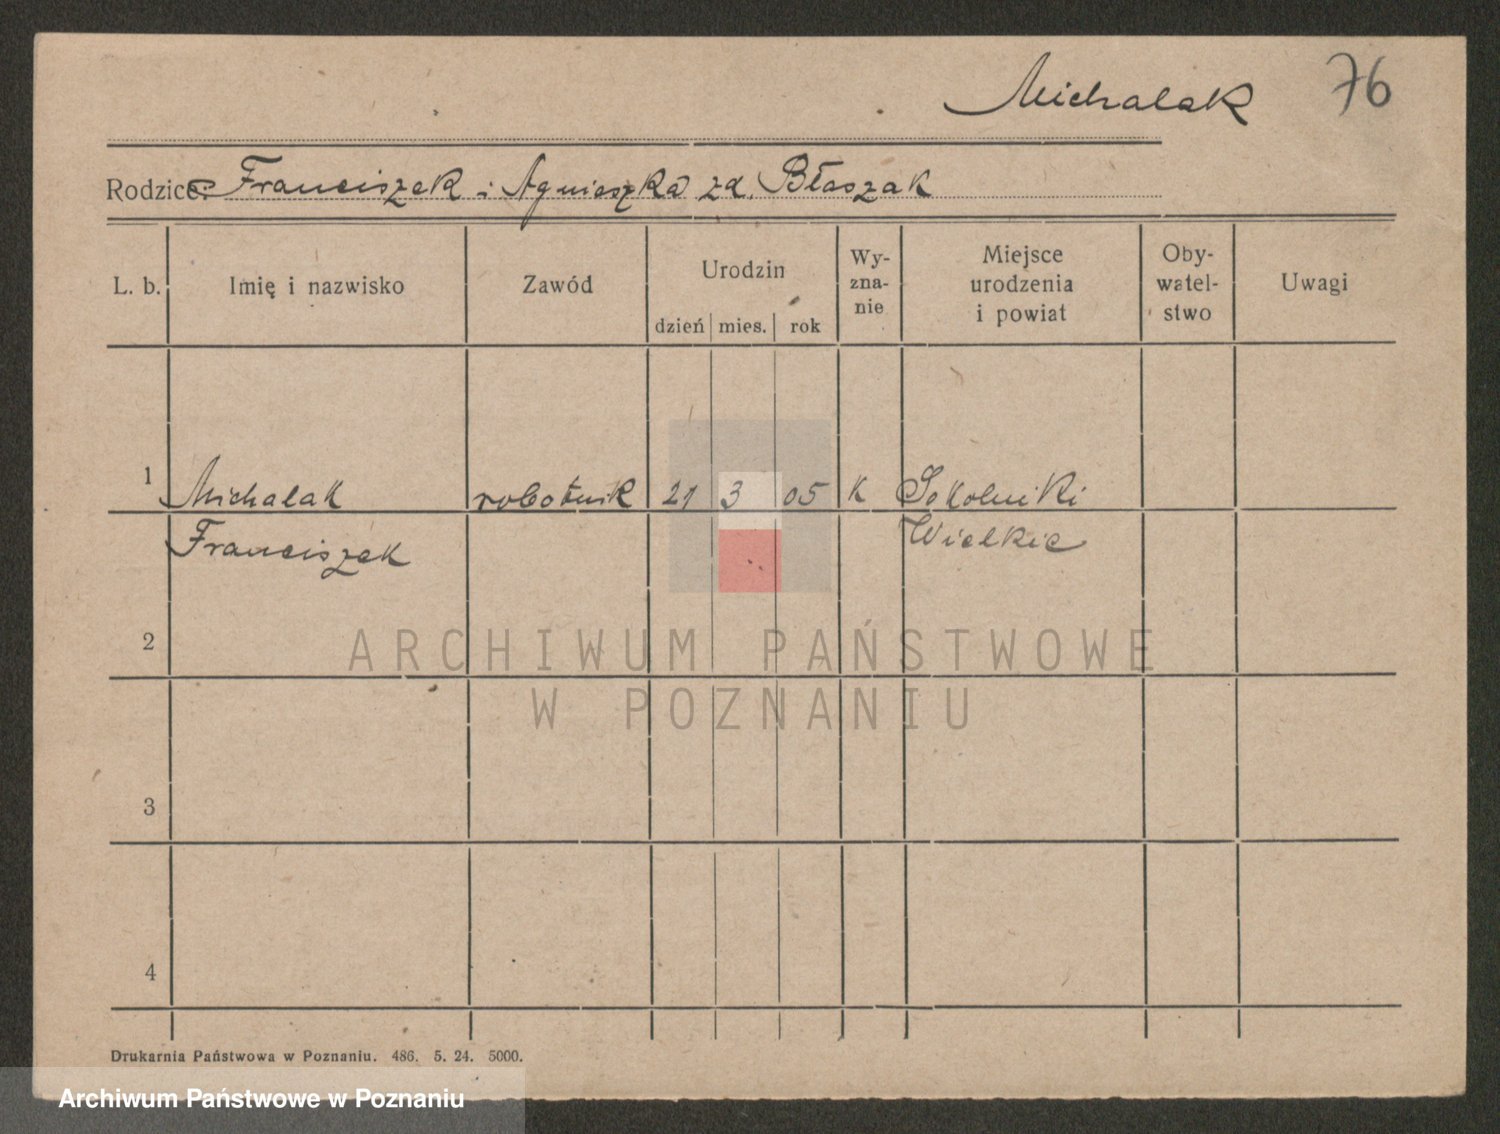 Michalak 76
Rodzice: Franciszek i Agnieszka zd. Błaszak
L. b. Imię i nazwisko Zawód Urodzin dzień mies. rok Wy-zna-nie Miejsce urodzenia i powiat Oby-watel-stwo Uwagi
1 Michalak robotnik 21 3 05 K Sokolniki
Franciszek Wielkie
2
ARCHIWUM PAŃSTWOWE
W POZNANIU
3
4
Drukarnia Państwowa w Poznaniu. 486. 5. 24. 5000.
Archiwum Państwowe w Poznaniu